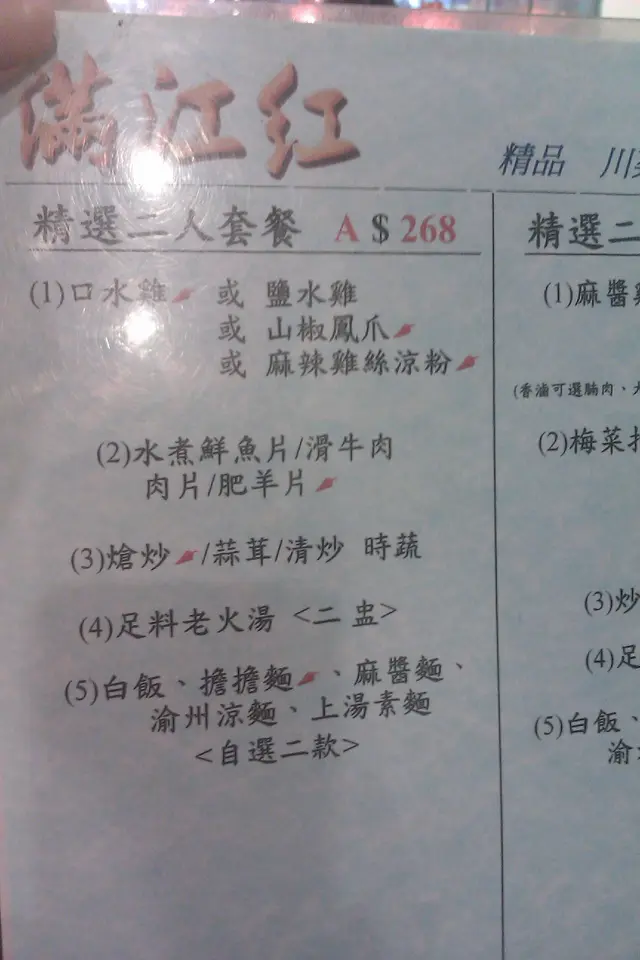 满江红
精品 川
精選二人套餐 A $ 268
(1)口水雞 或 鹽水雞
或 山椒鳳爪
或 麻辣雞絲涼粉
(2)水煮鮮魚片/滑牛肉
肉片/肥羊片
(3)熗炒/蒜茸/清炒 時蔬
(4)足料老火湯 <二 盅>
(5)白飯、擔擔麵、麻醬麵、
渝州涼麵、上湯素麵
<自選二款>
精選二
(1)麻醬
(香滷可選腩肉、
(2)梅菜
(3)炒
(4)足
(5)白飯、
渝